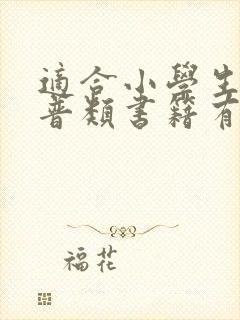 適合小學生
普類書籍有
福花